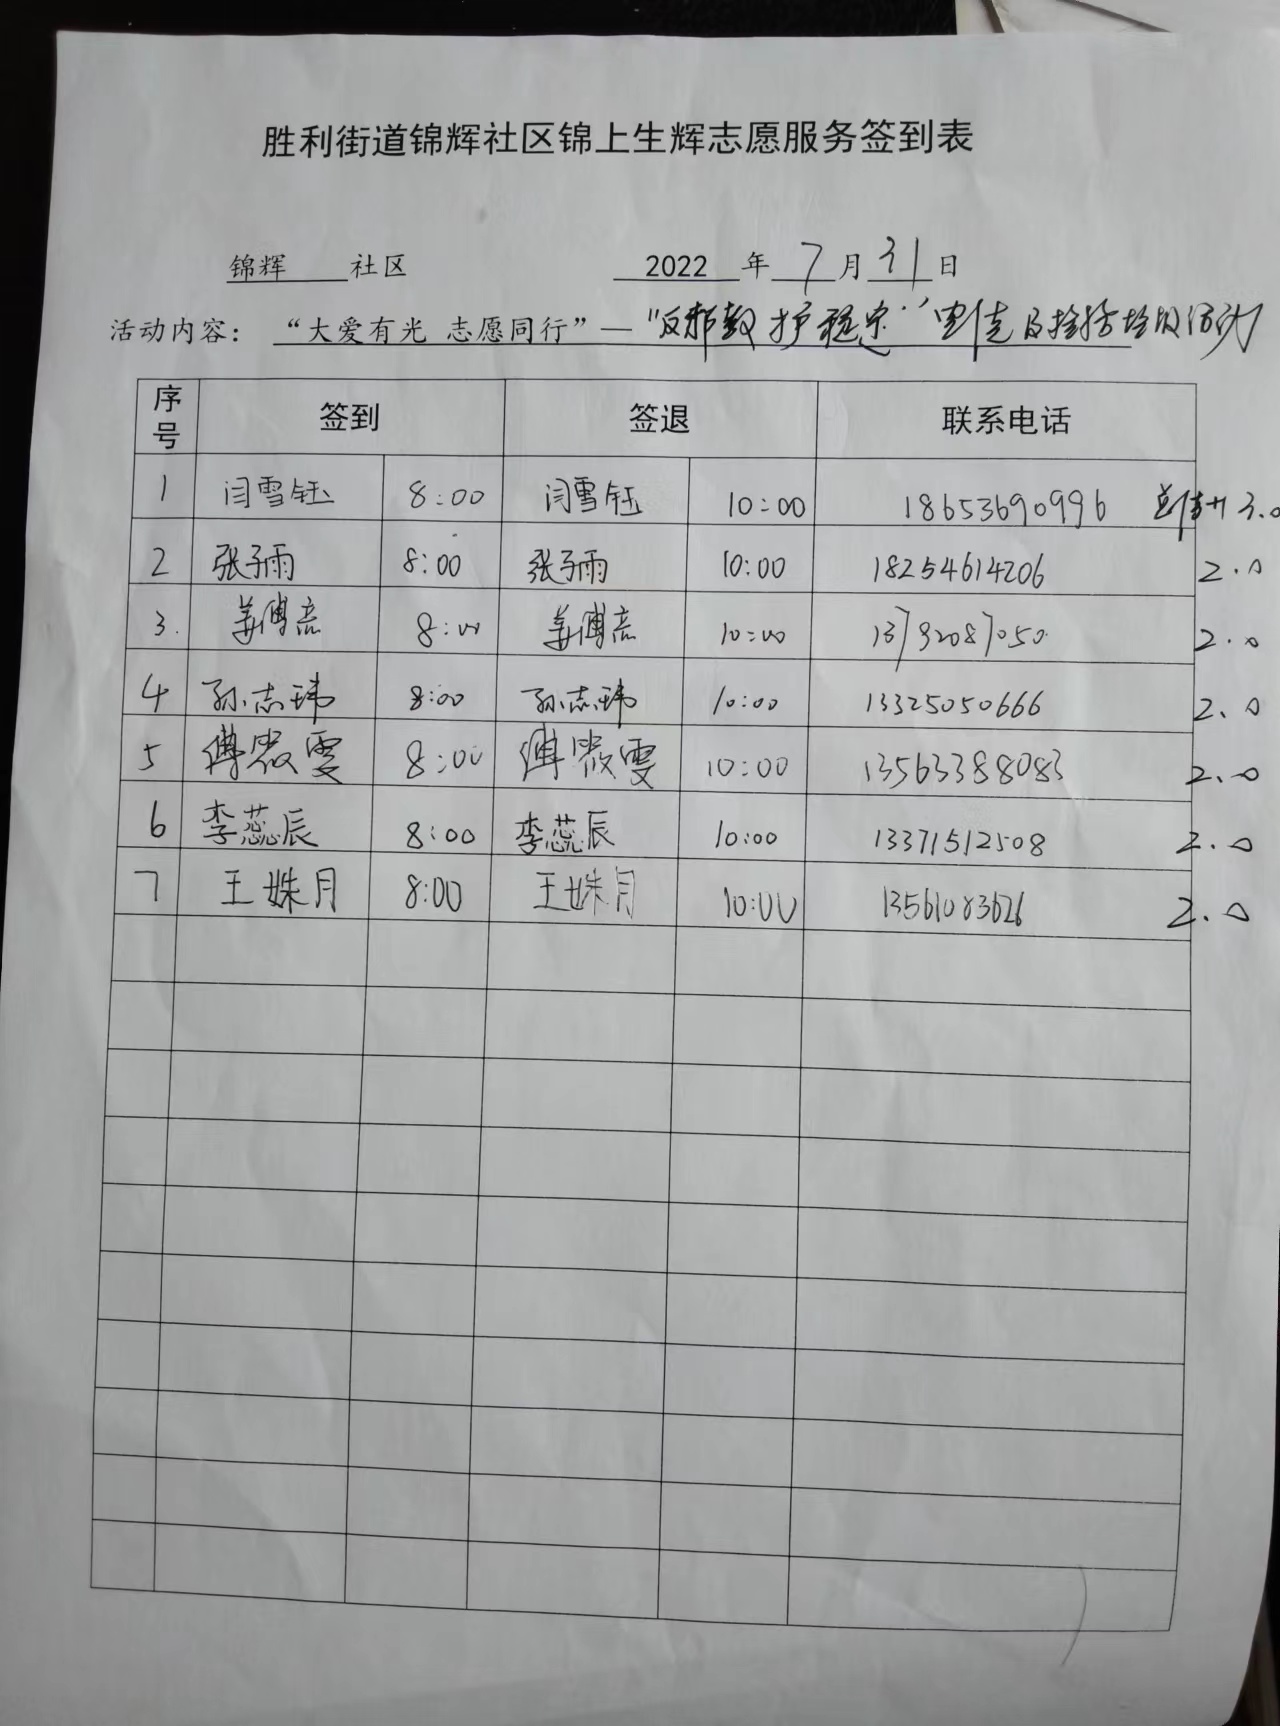 胜利街道锦辉社区锦上生辉志愿服务签到表
锦辉 社区 2022 年 7 月 31 日
活动内容： “大爱有光 志愿同行”—“反邪教 护稳定”宣传及捡拾垃圾活动
序号 签到 签退 联系电话
1 闫雪钰 8:00 闫雪钰 10:00 18653690996 3.0
2 张子雨 8:00 张子雨 10:00 18254614206 2.0
3. 姜博 8:00 姜博 10:00 13792087050 2.0
4 孙志玮 8:00 孙志玮 10:00 13325050666 2.0
5 傅 雯 8:00 傅 雯 10:00 13563388083 2.0
6 李蕊辰 8:00 李蕊辰 10:00 13371512508 2.0
7 王姝月 8:00 王姝月 10:00 13561083626 2.0